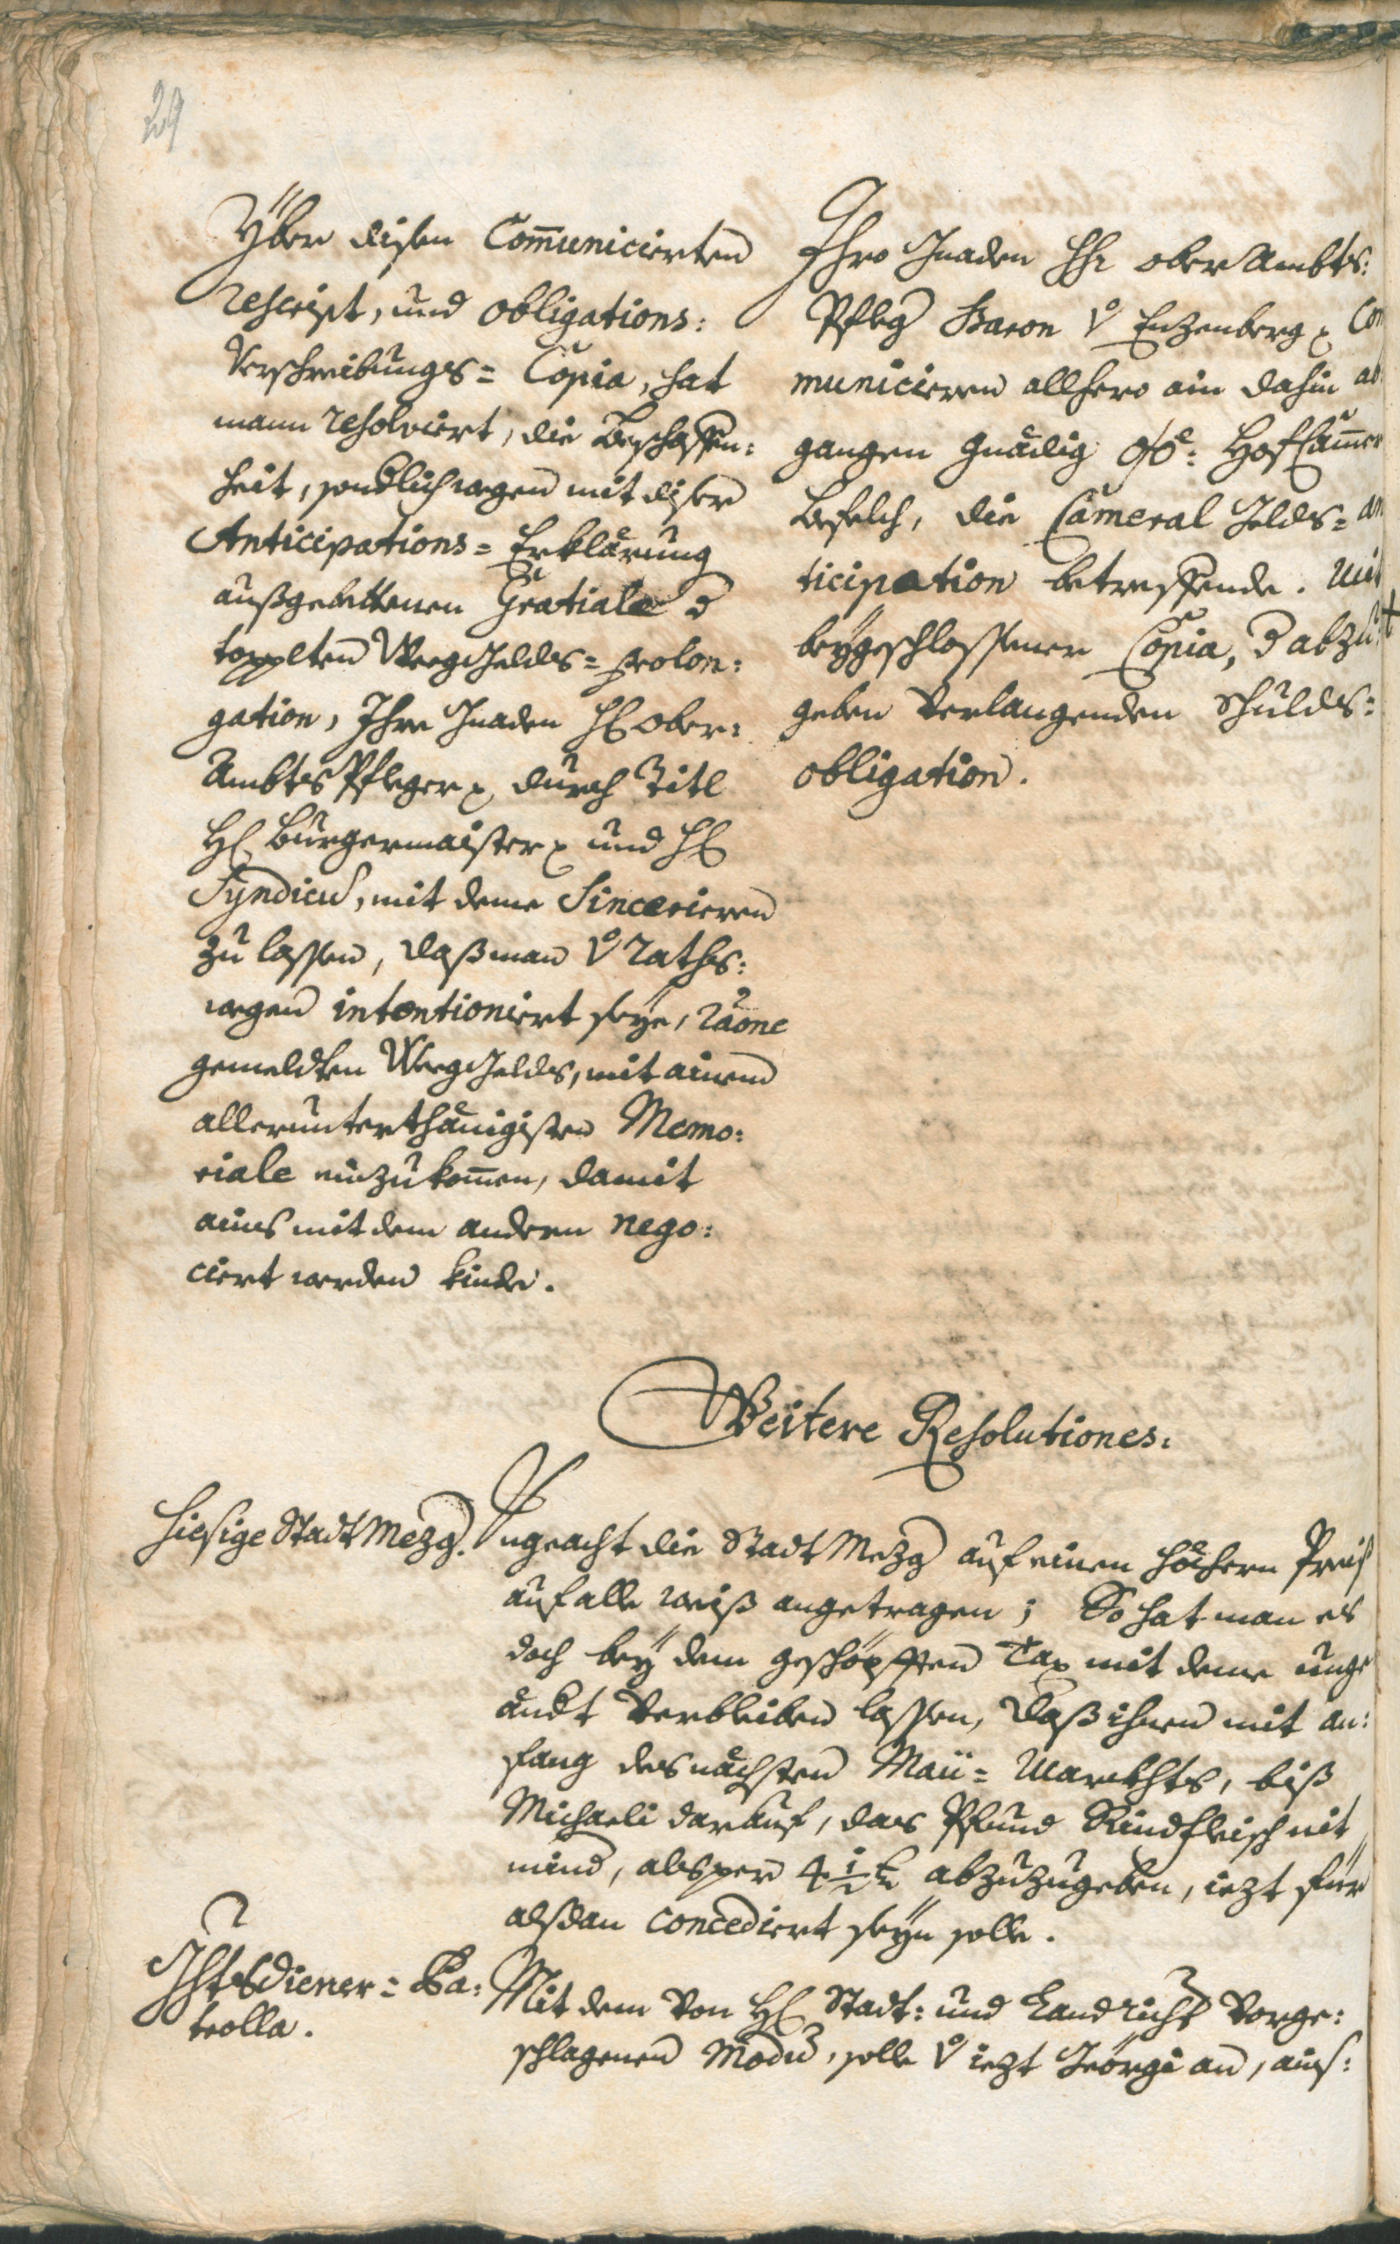 29
Yber disen Com̄unicierten
rescript, und obligations:
Verschreibungs= Copia, hat
mann resolviert, die Beschaffen:
heit, sondlich wegen mit diser
Anticipations= Erklärung
außgebettenen Gratiale
topplten Weeg Gelds= prolon:
gation, Ihro Gnaden H: Ober:
Ambts Pfleger durch Titl
H: Burgermaister und H:
Syndicus, mit deme Sincerieren
zu lassen, daß man v: Raths:
wegen intentioniert seÿe, raōne
gemeldten Weeg Gelds, mit ainem
allerunterthänigisten Memo:
riale einzukom̄en, damit
ains mit dem andern nego:
ciert werden kinde.
Ihro Gnaden H: ober Ambts:
Pfleg Baron v: Enzenberg Com
municieren allhero ein dahin ab
gangen Gnädig Hof Cam̄er
Befelch, die Cameral Gelds= an
ticipation betreffende. Mit
beÿgeschlossener Copia, abzu
geben verlangenden Schulds:
obligation.
Weitere Resolutiones.
Hiesige Stadt Mezg.
Ungeacht die Stadt Mezg auf einen höchern Preiß
auf alle weiß angetragen; So hat man es
doch beÿ dem geschöpfften Tax mit deme unge
ändt verbleiben lassen, daß ihnen mit an:
fang des nächsten Maii= Marckhts, biß
Michaeli darauf, das Pfund Rindfleisch nit
mind, als per 4 1/2 k abzuzugeben, iezt für
alßdan concediert seÿn solle.
Ghtsdiener= Pa:
trolla.
Mit dem von H: Stadt: und Landricht vorge:
schlagenen Modus, solle v: iezt Geörgi an, auf: